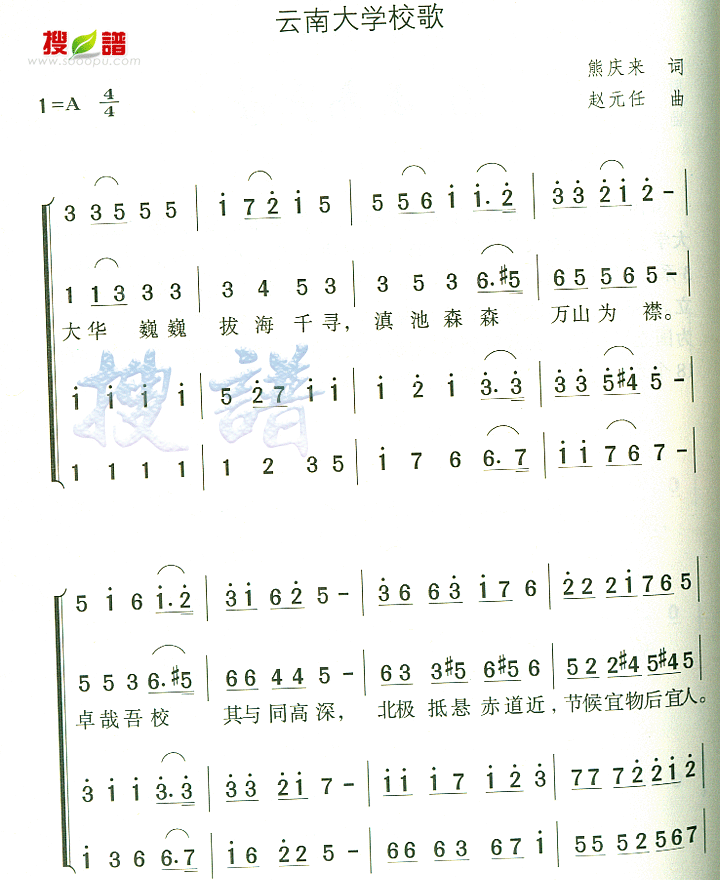 云南大学校歌
搜谱
www.sooopu.com
熊庆来 词
1=A 4/4
赵元任 曲
3 3 5 5 5 | i 7 2̇ i 5 | 5 5 6 i i. 2̇ | 3̇ 3̇ 2̇ i 2̇ –
1 1 3 3 3 | 3 4 5 3 | 3 5 3 6. #5 | 6 5 5 6 5 –
大华 巍巍 拔海千寻，滇池森森 万山为 襟。
i i i i | 5 2̇ 7 i i | i 2̇ i 3̇. 3̇ | 3̇ 3̇ 5̇ #4̇ 5̇ –
1 1 1 1 | 1 2 3 5 | i 7 6 6. 7 | i i 7 6 7 –
5 i 6 i. 2̇ | 3̇ i 6 2̇ 5 – | 3̇ 6 6 3̇ i 7 6 | 2̇ 2 2 i 7 6 5
5 5 3 6. #5 | 6 6 4 4 5 – | 6 3 3 #5 6 #5 5 | 5 2 2 #4 5 #4 5
卓哉吾校 其与同高深，北极 抵悬赤道近，节候宜物后宜人。
3̇ i i 3̇. 3̇ | 3̇ 3̇ 2̇ i 7 – | i i i 7 i 2̇ 3̇ | 7 7 7 2̇ 2̇ i 2̇
i 3 6 6. 7 | i 6 2̇ 2 5 – | 6 6 6 3 6 7 i | 5 5 5 2 5 6 7